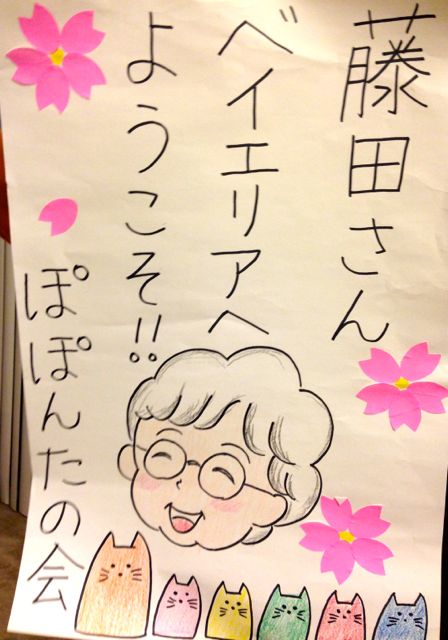 藤田さん
ベイエリアへ
ようこそ!!
ぽぽんたの会